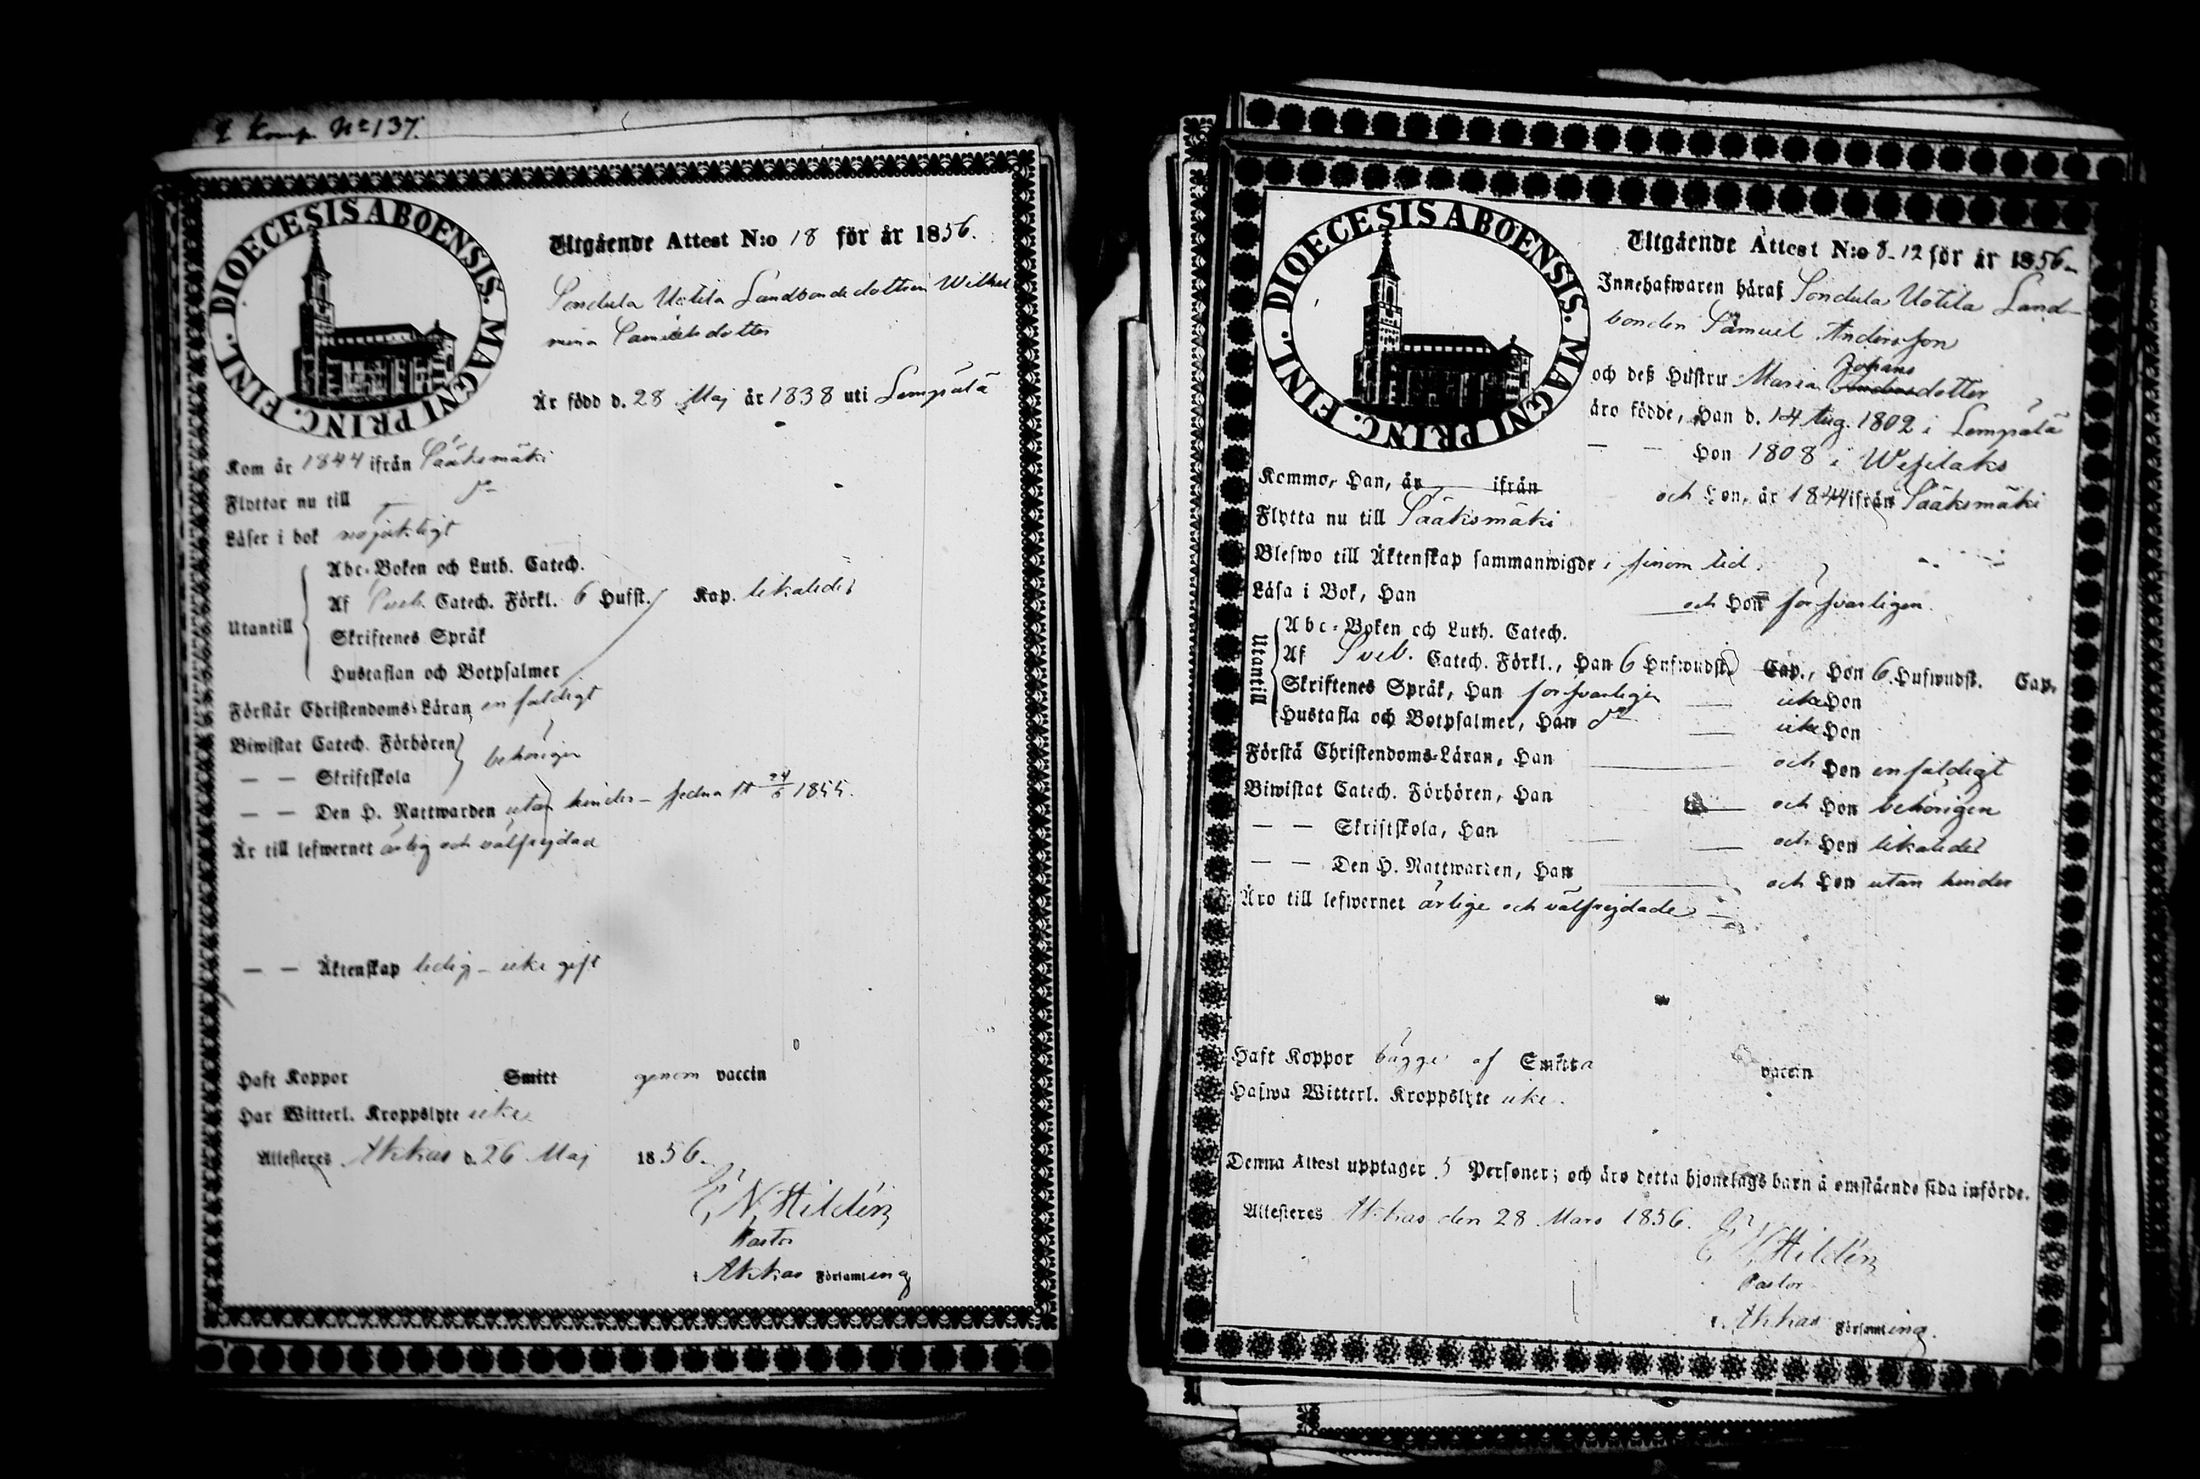 Komp. No 137.
DIOECESIS ABOENSIS. MAGNI PRINC. FINL.
Utgående Attest N:o 18 för år 1856.
Sondula Uotila Landbondedottren Wilhel
mina Samuelsdotter
Är född d. 28 Maj år 1838 uti Lempälä
Kom år 1844 ifrån Sääksmäki
Flyttar nu till do
Läser i bok nöjaktigt
Utantill
Abc-Boken och Luth. Catech.
Af Sveb. Catech. Förkl. 6 Hufst. Kap. likaledes
Skriftenes Språk
Hustaflan och Botpsalmer
Förstår Christendoms-Läran enfaldigt
Biwistat Catech. Förhören behörigen
— — Skriftskola
— — Den H. Nattwarden utan hinder – sednast 24/6 1855.
Är till lefwernet ärlig och välfrejdad
— — Äktenskap ledig – icke gift
Haft Koppor Smitt genom vaccin
Har Witterl. Kroppslyte icke
Attesteres Akkas d. 26 Maj 1856.
E. N. Hildén
Pastor
i Akkas Församling
DIOECESIS ABOENSIS. MAGNI PRINC. FINL.
Utgående Attest N:o 8-12 för år 1856.
Innehafwaren häraf Sondula Uotila Land-
bonden Samuel Andersson
Johans
och deß Hustru Maria dotter
äro födde, Han d. 14 Aug. 1802 i Lempälä
— — Hon 1808 i Wesilaks
Kommo, Han, år ifrån och Hon, år 1844 ifrån Sääksmäki
Flytta nu till Sääksmäki
Blefwo till Äktenskap sammanwigde i sinom tid.
Läsa i Bok, Han och Hon försvarligen
Utantill
Abc-Boken och Luth. Catech.
Af Sveb. Catech. Förkl., Han 6 Hufwudst. Cap., Hon 6 Hufwudst. Cap.
Skriftenes Språk, Han försvarligen icke Hon
Hustafla och Botpsalmer, Han do icke Hon
Förstå Christendoms-Läran, Han och Hon enfaldigt
Biwistat Catech. Förhören, Han och Hon behörigen
— — Skriftskola, Han och Hon likaledes
— — Den H. Nattwarden, Han och Hon utan hinder
Äro till lefwernet ärlige och välfrejdade
Haft Koppor bägge af Smitta vaccin
Hafwa Witterl. Kroppslyte icke.
Denna Attest upptager 5 Personer; och äro detta hjonelags barn å omstående sida införde.
Attesteres Akkas den 28 Mars 1856.
E. N. Hildén
Pastor
i Akkas Församling.